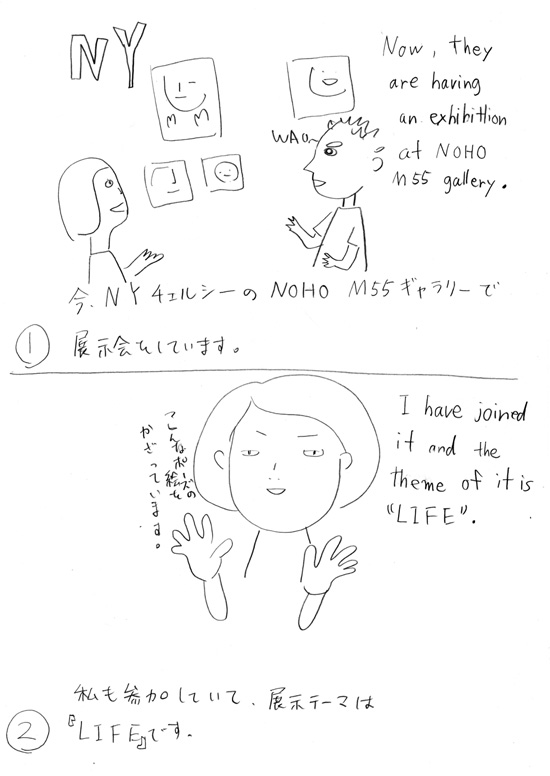 NY
Now, they
are having
an exhibittion
at NOHO
M55 gallery.
WAO~
今、NYチェルシーのNOHO M55ギャラリーで
① 展示会をしています。
I have joined
it and the
theme of it is
"LIFE".
こんなポーズの
絵を
かざっています。
私も参加していて、展示テーマは
② 『LIFE』です。